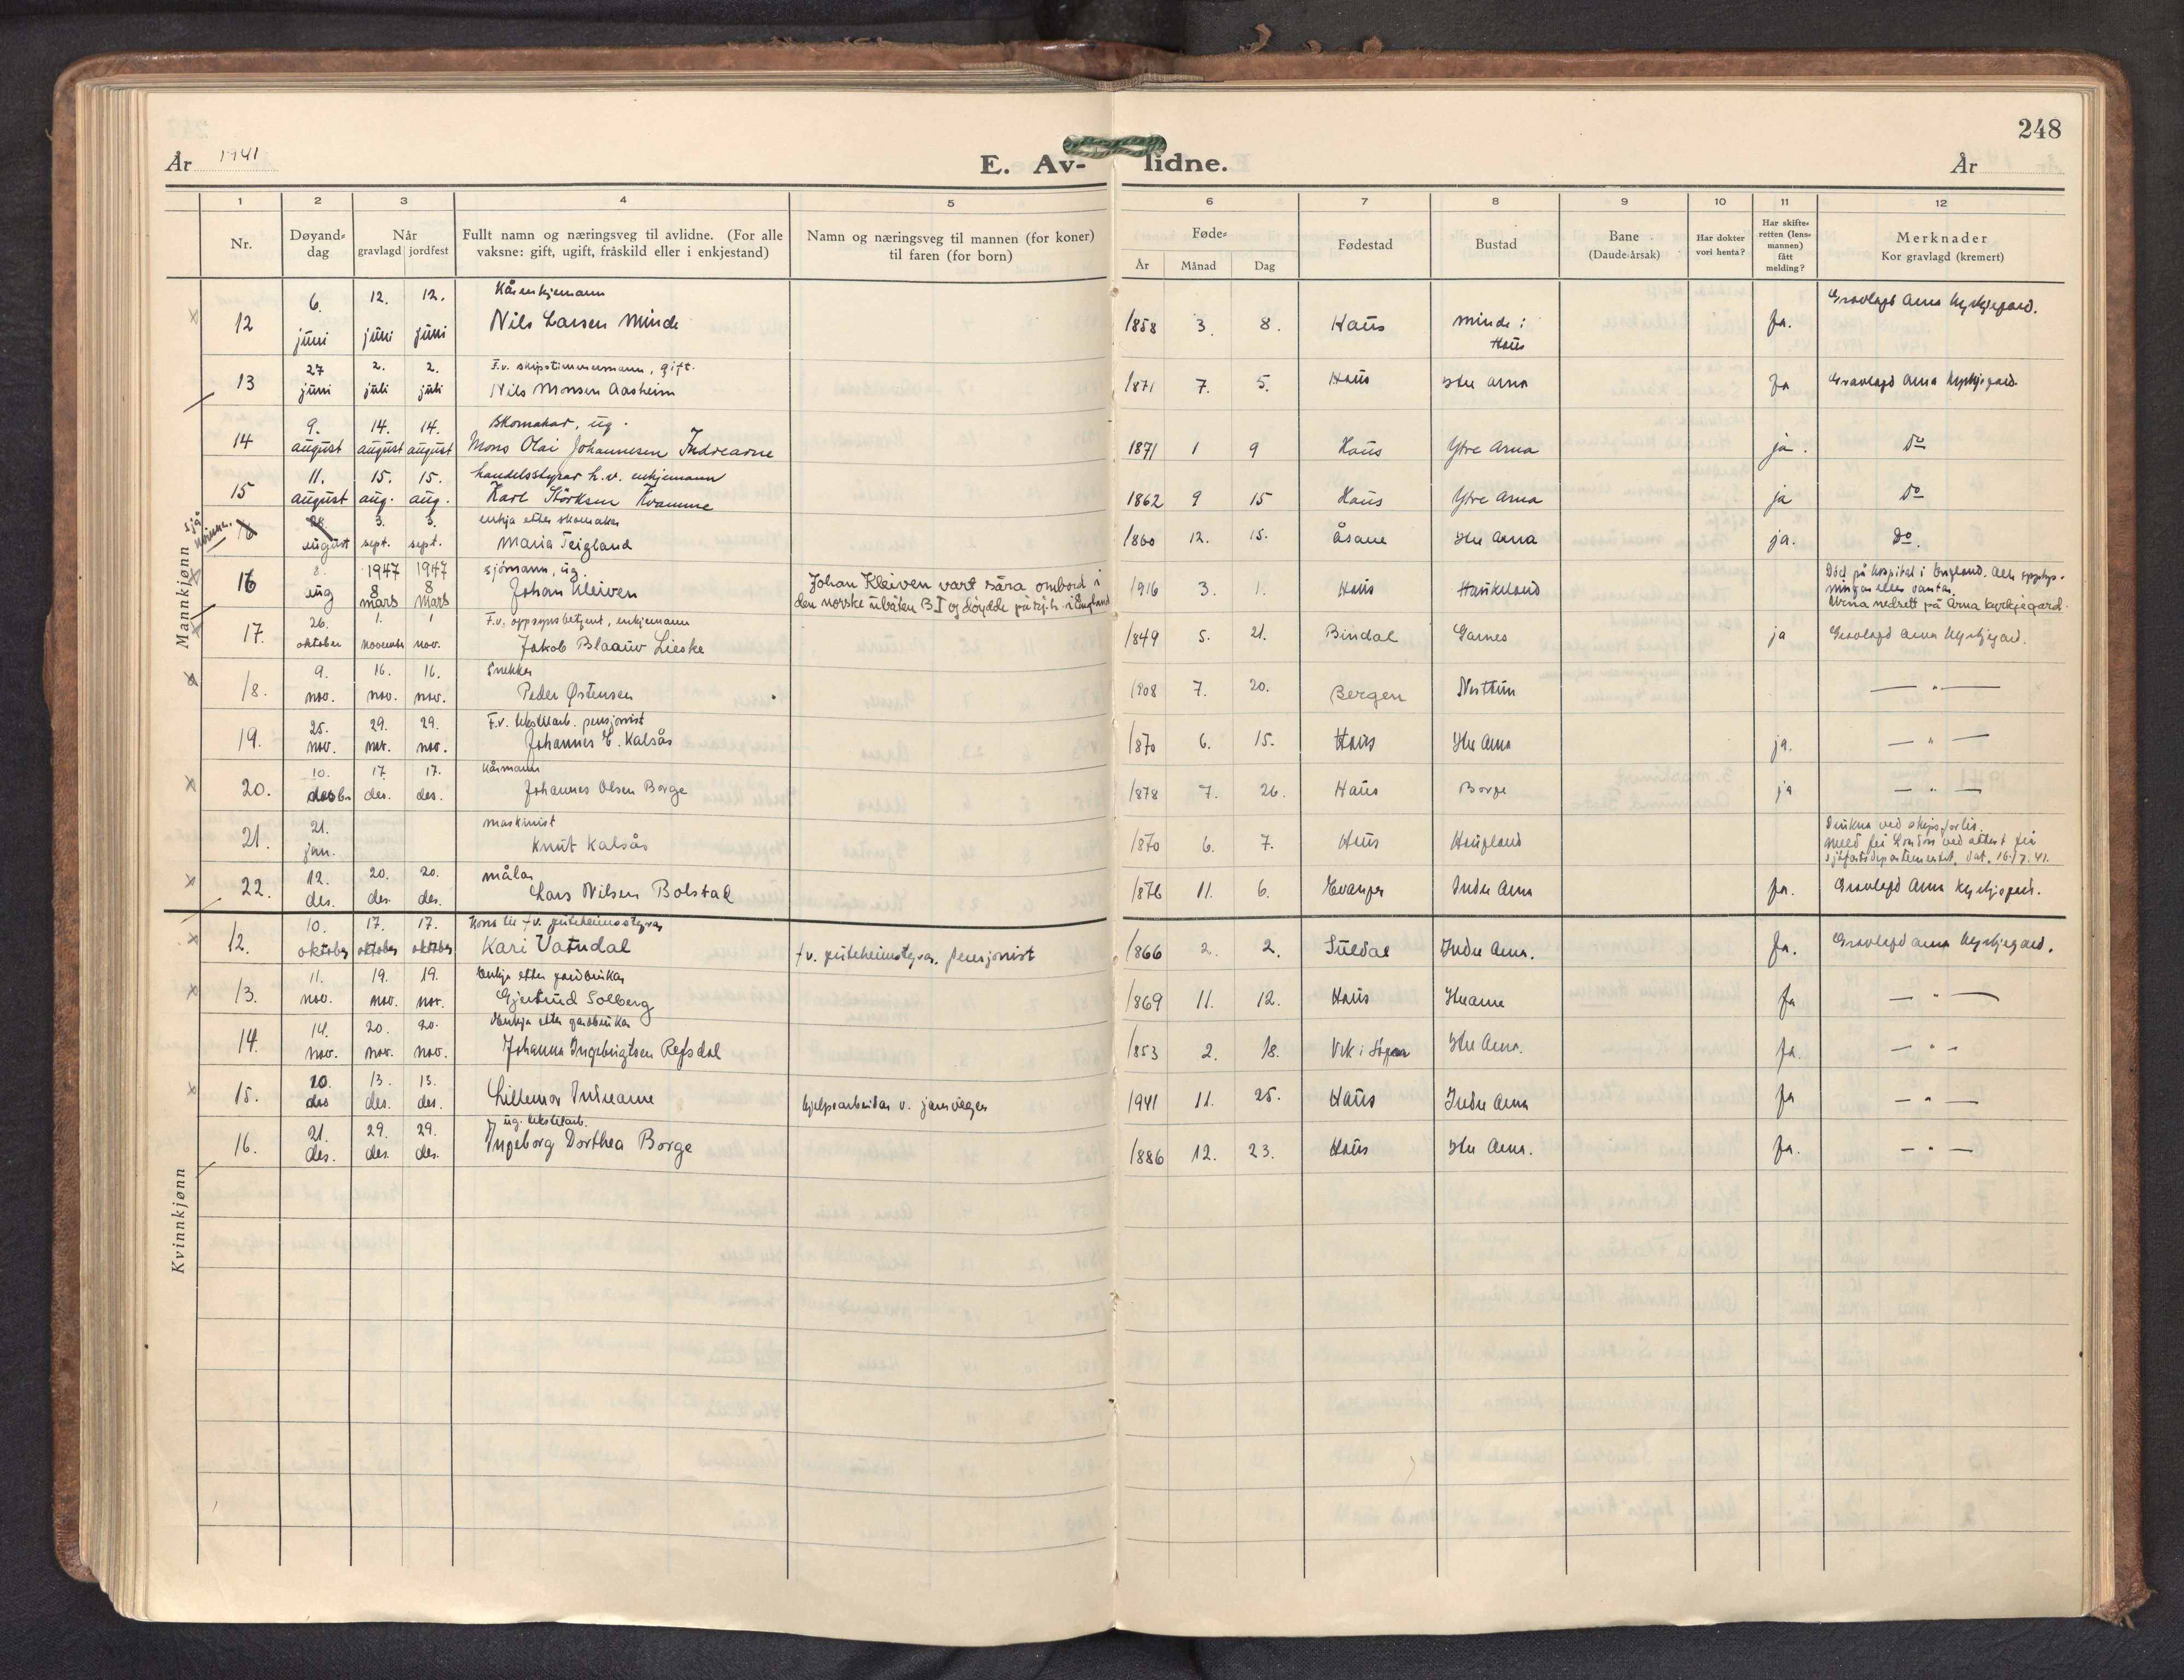 248
År 1941
E. Av- lidne.
År
1 2 3 4 5 6 7 8 9 10 11 12
Nr.
Døyand- dag
Når gravlagd jordfest
Fullt namn og næringsveg til avlidne. (For alle vaksne: gift, ugift, fråskild eller i enkjestand)
Namn og næringsveg til mannen (for koner) til faren (for born)
Føde- År Månad Dag
Fødestad
Bustad
Bane (Daude-årsak)
Har dokter vori henta?
Har skifte- retten (lens- mannen) fått melding?
Merknader Kor gravlagd (kremert)
Mannkjønn
12 6. juni 12. juni 12. juni Kårenkjemann Nils Larsen Minde 1858 3. 8. Haus Minde i Haus ja. Gravlagd Arna kyrkjegard.
13 27 juni 2. juli 2. juli F.v. skipstimmermann, gift. Nils Monsen Aasheim 1871 7. 5. Haus Ytre Arna ja Gravlagd Arna kyrkjegard.
14 9. august 14. august 14. august Skomakar, ug. Mons Olai Johannesen Indrearne 1871 1 9 Haus Ytre Arna ja. Do
15 11. august 15. aug. 15. aug. handelsstyrar h.v. enkjemann Karl Størksen Kvamme 1862 9 15 Haus Ytre Arna ja Do
sjå kvinner.
16 28. august 3. sept. 3. sept. enkja etter skomaker Maria Teigland 1860 12. 15. Åsane Ytre Arna ja. Do.
16 8. aug 1947 8 mars 1947 8 mars sjømann, ug. Johan Kleiven Johan Kleiven vart såra ombord i den norske ubåten B I og døydde på sj.h. i England 1916 3. 1. Haus Haukeland Død på hospital i England. Alle opplys- ningar elles vantar. Urna nedsett på Arna kyrkjegard.
17. 26. oktober 1. november 1 nov. F.v. oppsynsbetjent, enkjemann Jakob Blaauw Lieske 1849 5. 21. Bindal Garnes ja Gravlagd Arna kyrkjegard.
18. 9. nov. 16. nov. 16. nov. Snekker Peder Østensen 1908 7. 20. Bergen Nesttun — " —
19. 25. nov. 29. nov. 29. nov. F.v. tekstilarb. pensjonist Johannes E. Kalsås 1870 6. 15. Haus Ytre Arna ja. — " —
20. 10. desbr 17. des. 17. des. Kårmann Johannes Olsen Borge 1878 7. 26. Haus Borge ja — " —
21. 21. jan. maskinist Knut Kalsås 1870 6. 7. Haus Haugland Drukna ved skipsforlis. Meld frå London ved attest frå sjøfartsdepartementet, dat. 16/7. 41.
22. 12. des. 20. des. 20. des. målar Lars Nilsen Bolstad 1876 11. 6. Evanger Indre Arna ja. Gravlagd Arna kyrkjegard.
Kvinnkjønn
12. 10. oktober 17. oktober 17. oktober Kona til f.v. guteheimstyrar Kari Vatndal f.v. guteheimstyrar, pensjonist 1866 2. 2. Suldal Indre Arna. ja. Gravlagd Arna kyrkjegard.
13. 11. nov. 19. nov. 19. nov. Enkja etter gardbrukar Gjertrud Solberg 1869 11. 12. Haus Ytre Arna ja — " —
14. 14. nov. 20. nov. 20. nov. Enkja etter gardbrukar Johanna Ingebrigtsen Refsdal 1853 2. 18. Vik i Sogn Ytre Arna. ja. — " —
15. 10. des 13. des. 13. des. Lillemor Indrearne hjelpearbeidar v. jarnvegen 1941 11. 25. Haus Indre Arna ja — " —
16. 21. des. 29. des. 29. des. ug. tekstilarb. Ingeborg Dorthea Borge 1886 12. 23. Haus Ytre Arna. ja. — " —